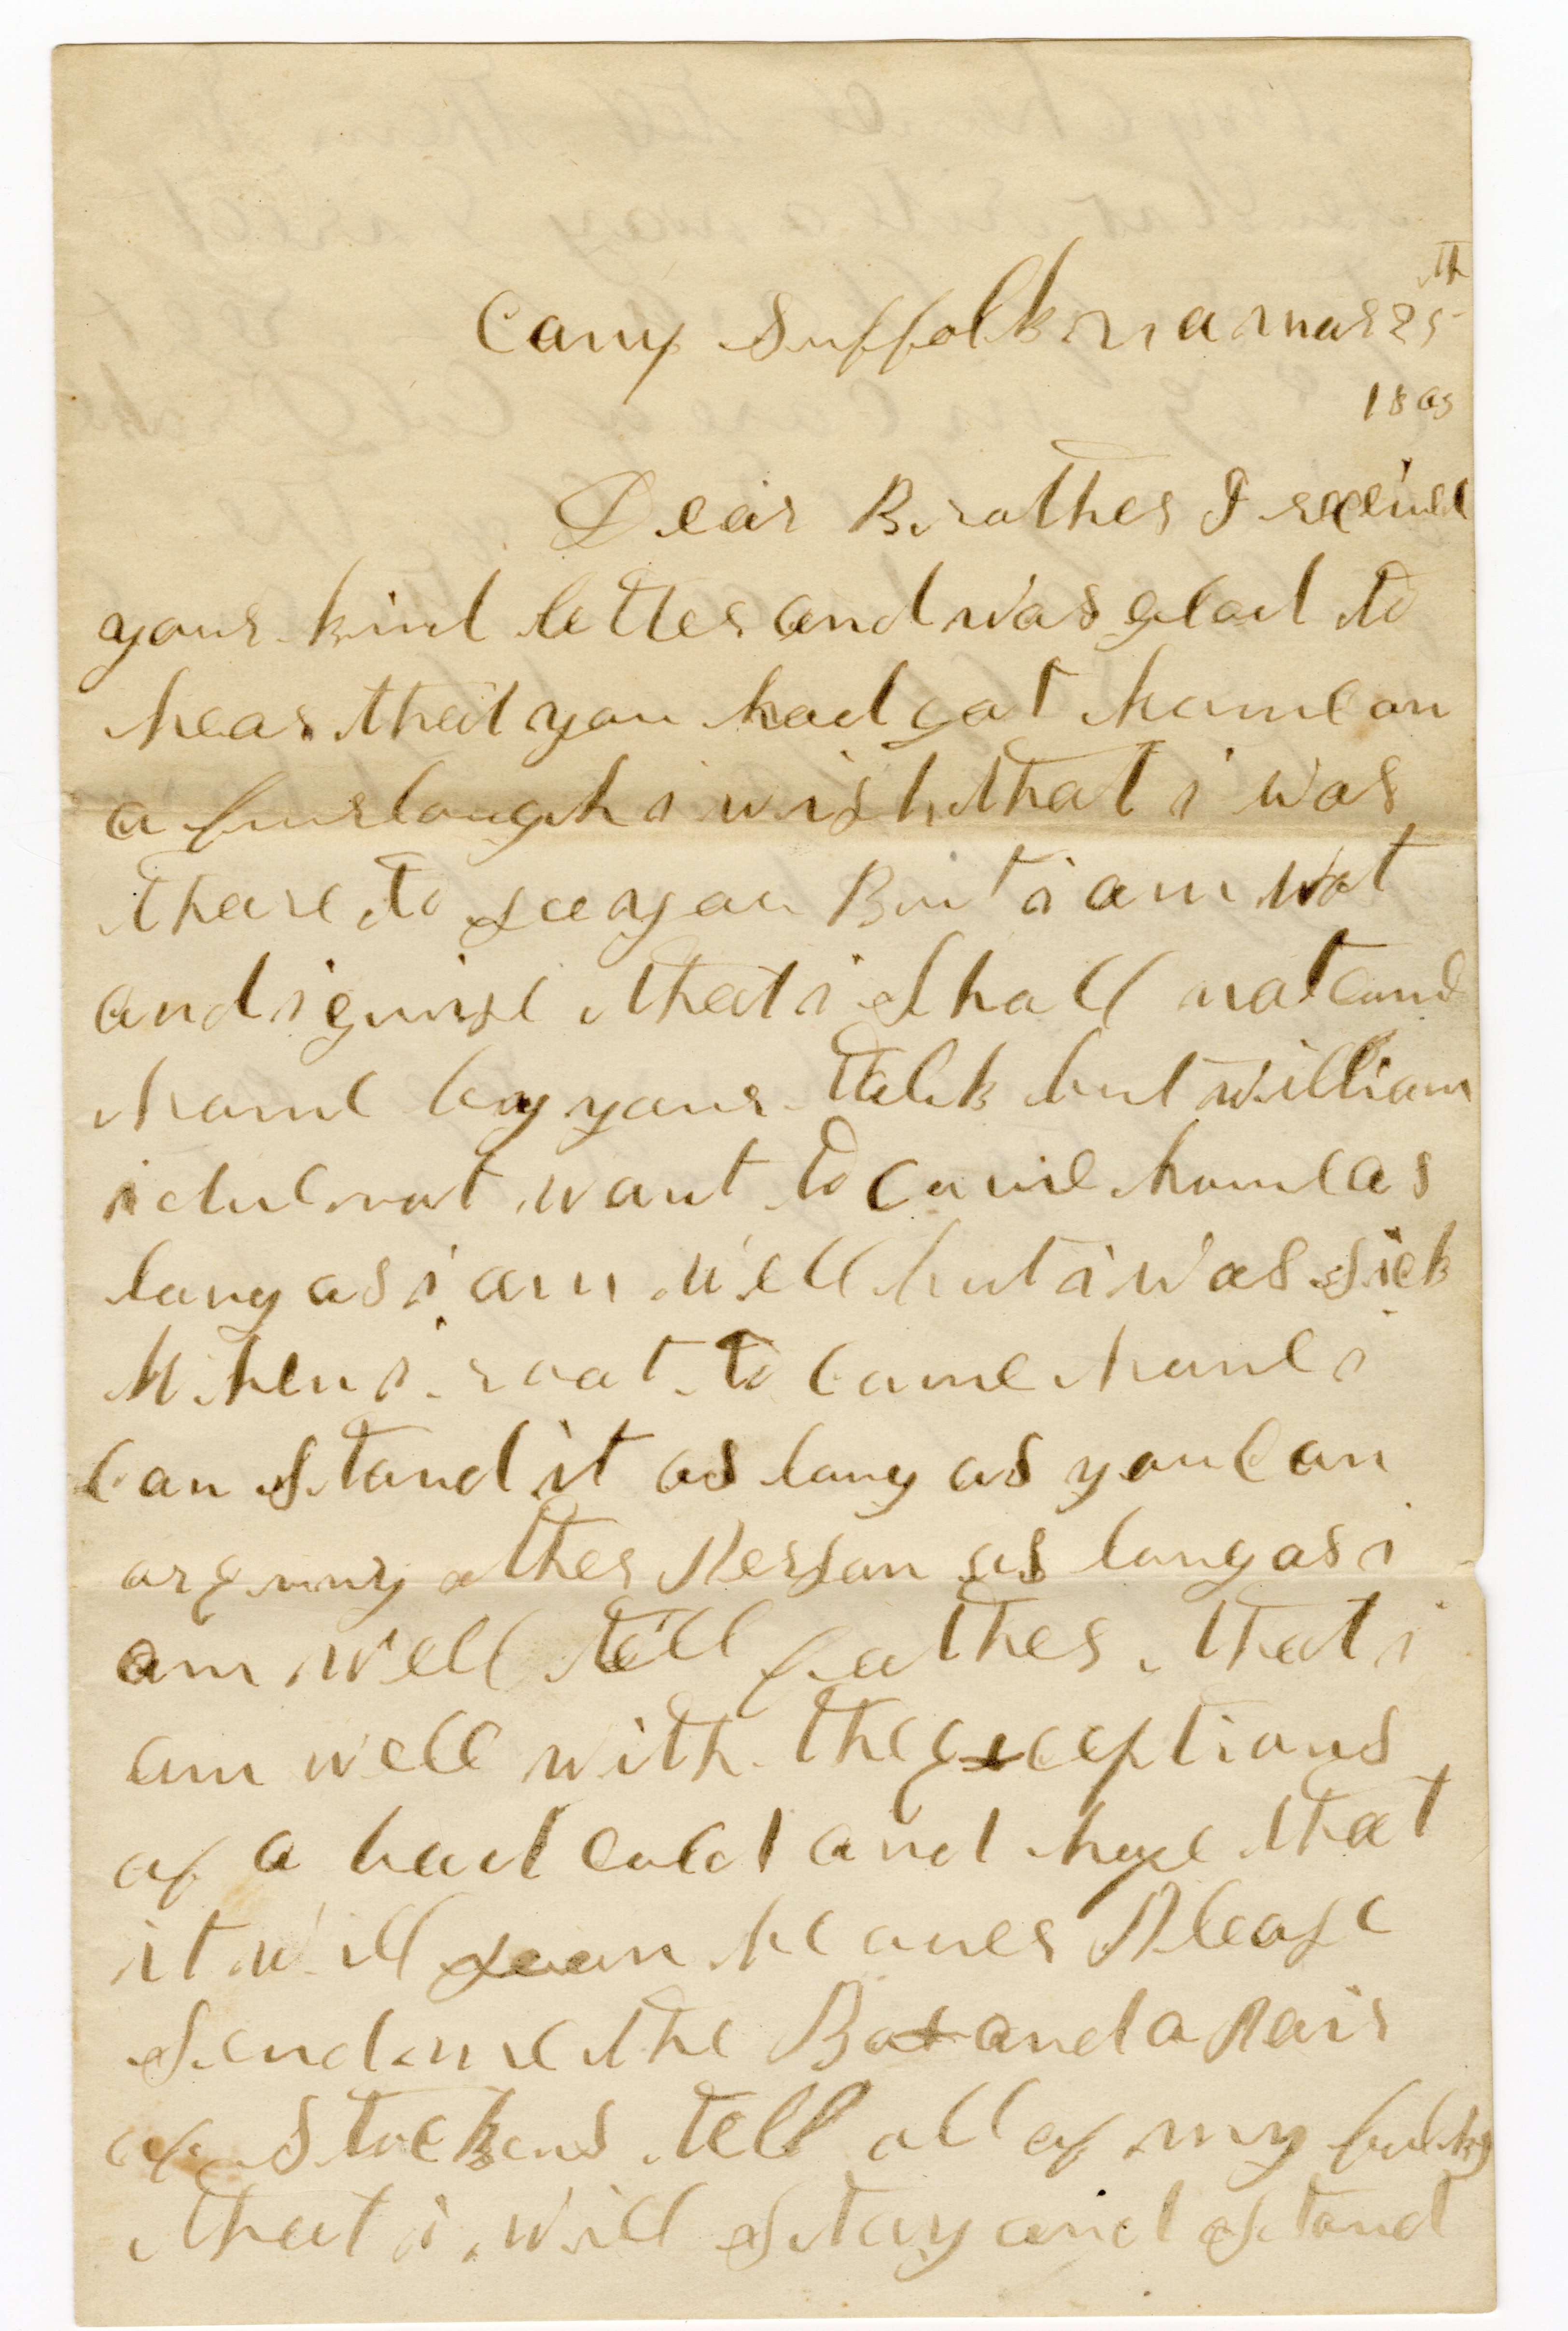 Camp Suffolk va mar 25th
186
Dear Brother I received
your kind letter and was glad to
hear that you had got home on
a furlough i wish that i was
theare to see you But i am not
and i guise that i shall not come
home by your talk but william
i due not want to come home as
long as i am well but i was sick
When i to come home i
can stand it as long as you can
or enny other Person as long as i
am well tell father that i
am well with the exceptions
of a bad cold and hope that
it will soon be over Please
send me the Box and a Pair
of stockens tell all of my folks
that i will stay and stand